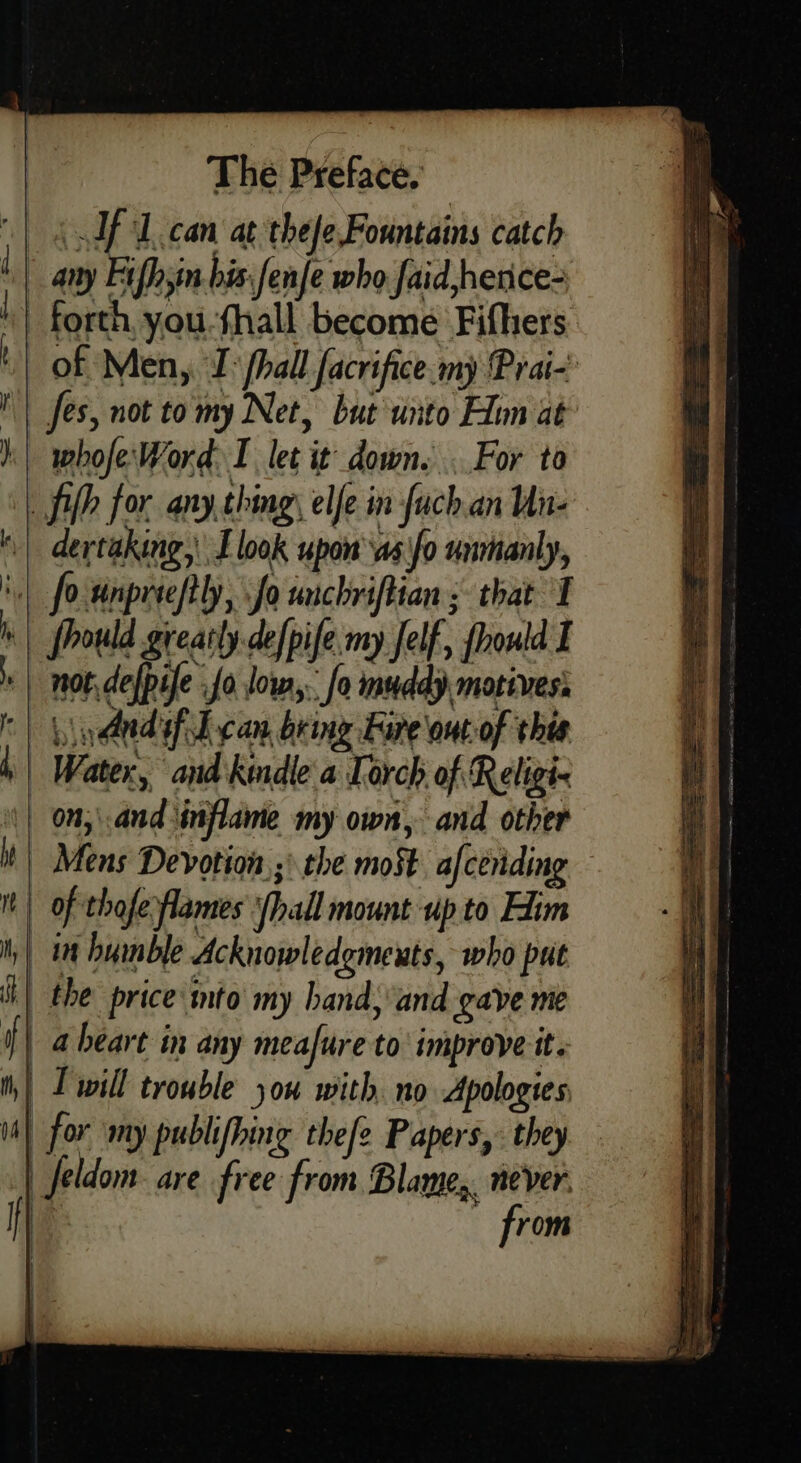 The Preface.
If I can at theſe Fountains catch
any Fiſh, in his ſenſe who ſaid, hence-
forth you ſhall become Fiſhers
of Men, I ſhall ſacrifice my Prai-
ſes, not to my Net, but unto Him at
whoſe Word I let it down. For to
fiſh for any thing elſe in ſuch an Un-
dertaking, I look upon as ſo unmanly,
ſo unprieſtly, ſo unchriſtian; that I
ſhould greatly deſpiſe my ſelf, ſhould I
not deſpiſe ſo low, ſo muddy motives.
And if I can bring Fire out of this
Water, and kindle a Torch of Religi-
on, and inflame my own, and other
Mens Devotion; the moſt aſcending
of thoſe flames ſhall mount up to Him
in humble Acknowledgments, who put
the price into my hand, and gave me
a heart in any meaſure to improve it.
I will trouble you with no Apologies
for my publiſhing theſe Papers, they
ſeldom are free from Blame, never
from